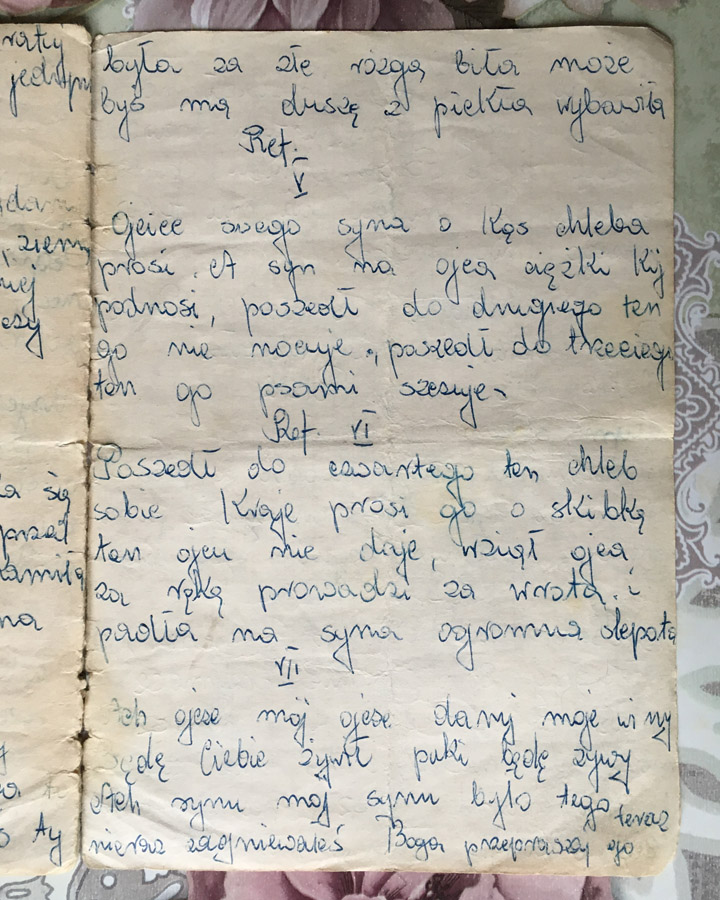 była za złe rózgą biła może
byś mą duszę z piekła wybawiła
Ref.
V
Ojciec swego syna o kęs chleba
prosi. A syn na ojca ciężki kij
podnosi, poszedł do drugiego ten
go nie nocuje, poszedł do trzeciego
ten go psami szczuje.
Ref. VI
Poszedł do czwartego ten chleb
sobie kraje prosi go o skibkę
ten ojcu nie daje, wziął ojca
za rękę prowadzi za wrota. i
padła na syna ogromna ślepota
VII
Ach ojcze mój ojcze daruj moje winy
będę Ciebie żywił puki będę żywy
Ach synu mój synu było tego teraz
nieraz zagniewałeś Boga przepraszaj go